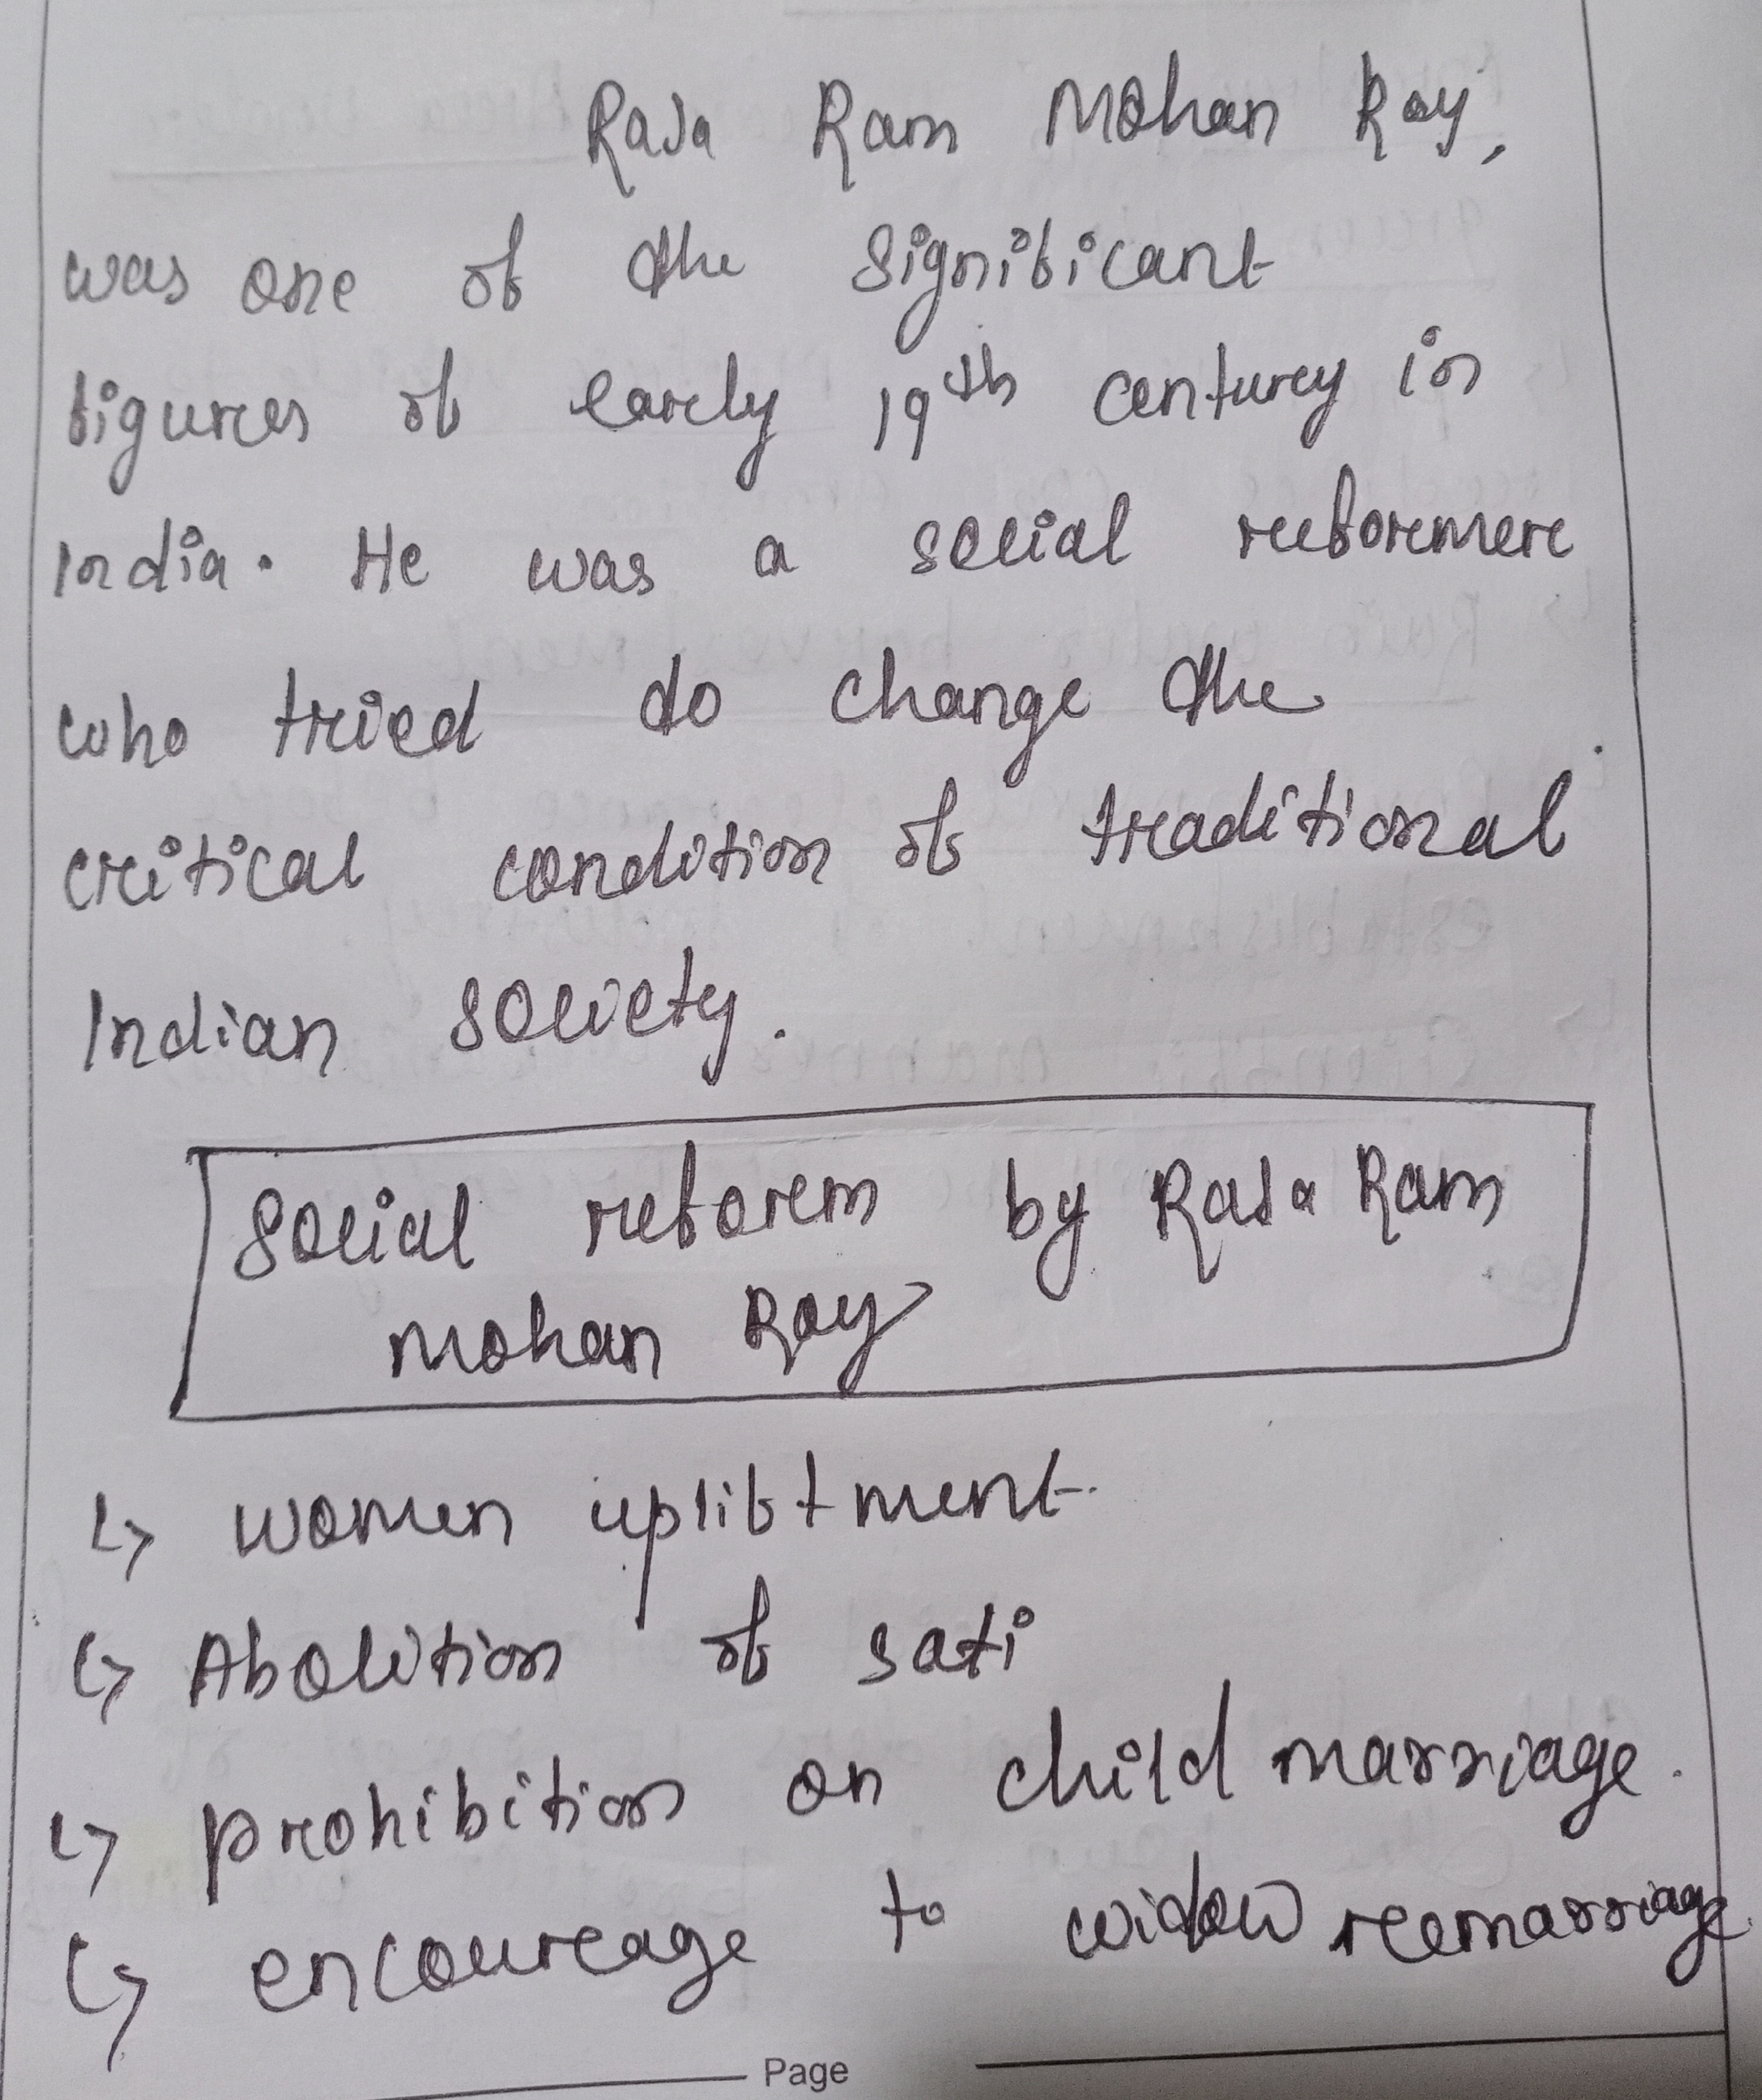 Raja Ram Mohan Roy,
was one of the significant
figures of early 19th century in
India. He was a social reformer
who tried to change the
critical condition of traditional
Indian society.
Social reform by Raja Ram
Mohan Roy
↳ women upliftment.
↳ Abolition of sati
↳ prohibition on child marriage.
↳ encourage to widow remarriage.
Page